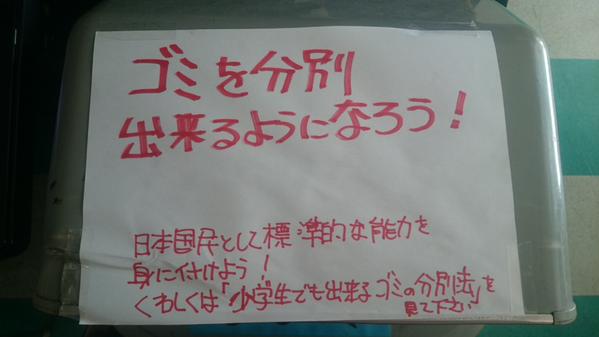 ゴミを分別
出来るようになろう!
日本国民として標準的な能力を
身に付けよう!
くわしくは「小学生でも出来るゴミの分別法」を
見て下さい